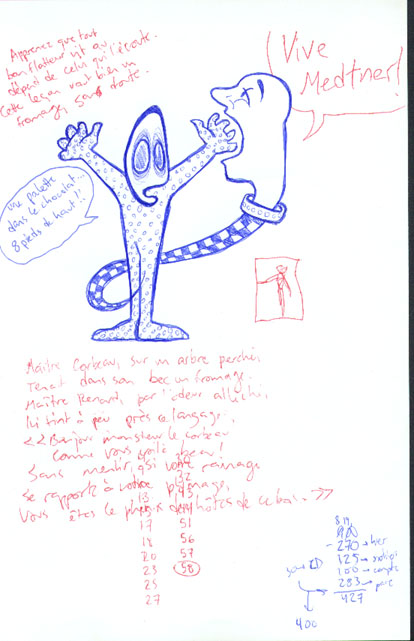 Apprenez que tout
bon flatteur vit au
dépent de celui qui l'écoute.
Cette leçon vaut bien un
fromage sans doute.
Vive
Medtner!
une palette
dans le chocolat
8 pieds de haut!!
Maître Corbeau, sur un arbre perché,
Tenait dans son bec un fromage.
Maître Renard, par l'odeur alléché,
lui tint à peu près ce langage:
<<Bonjour monsieur le corbeau
comme vous voilà beau!
Sans mentir, si votre ramage
se rapporte à votre plumage,
Vous êtes le phénix des hôtes de ce bois.>>
13
17 51
56
20 57
23 58
25
27
270 → hier
125
100 → compte
283
427
400